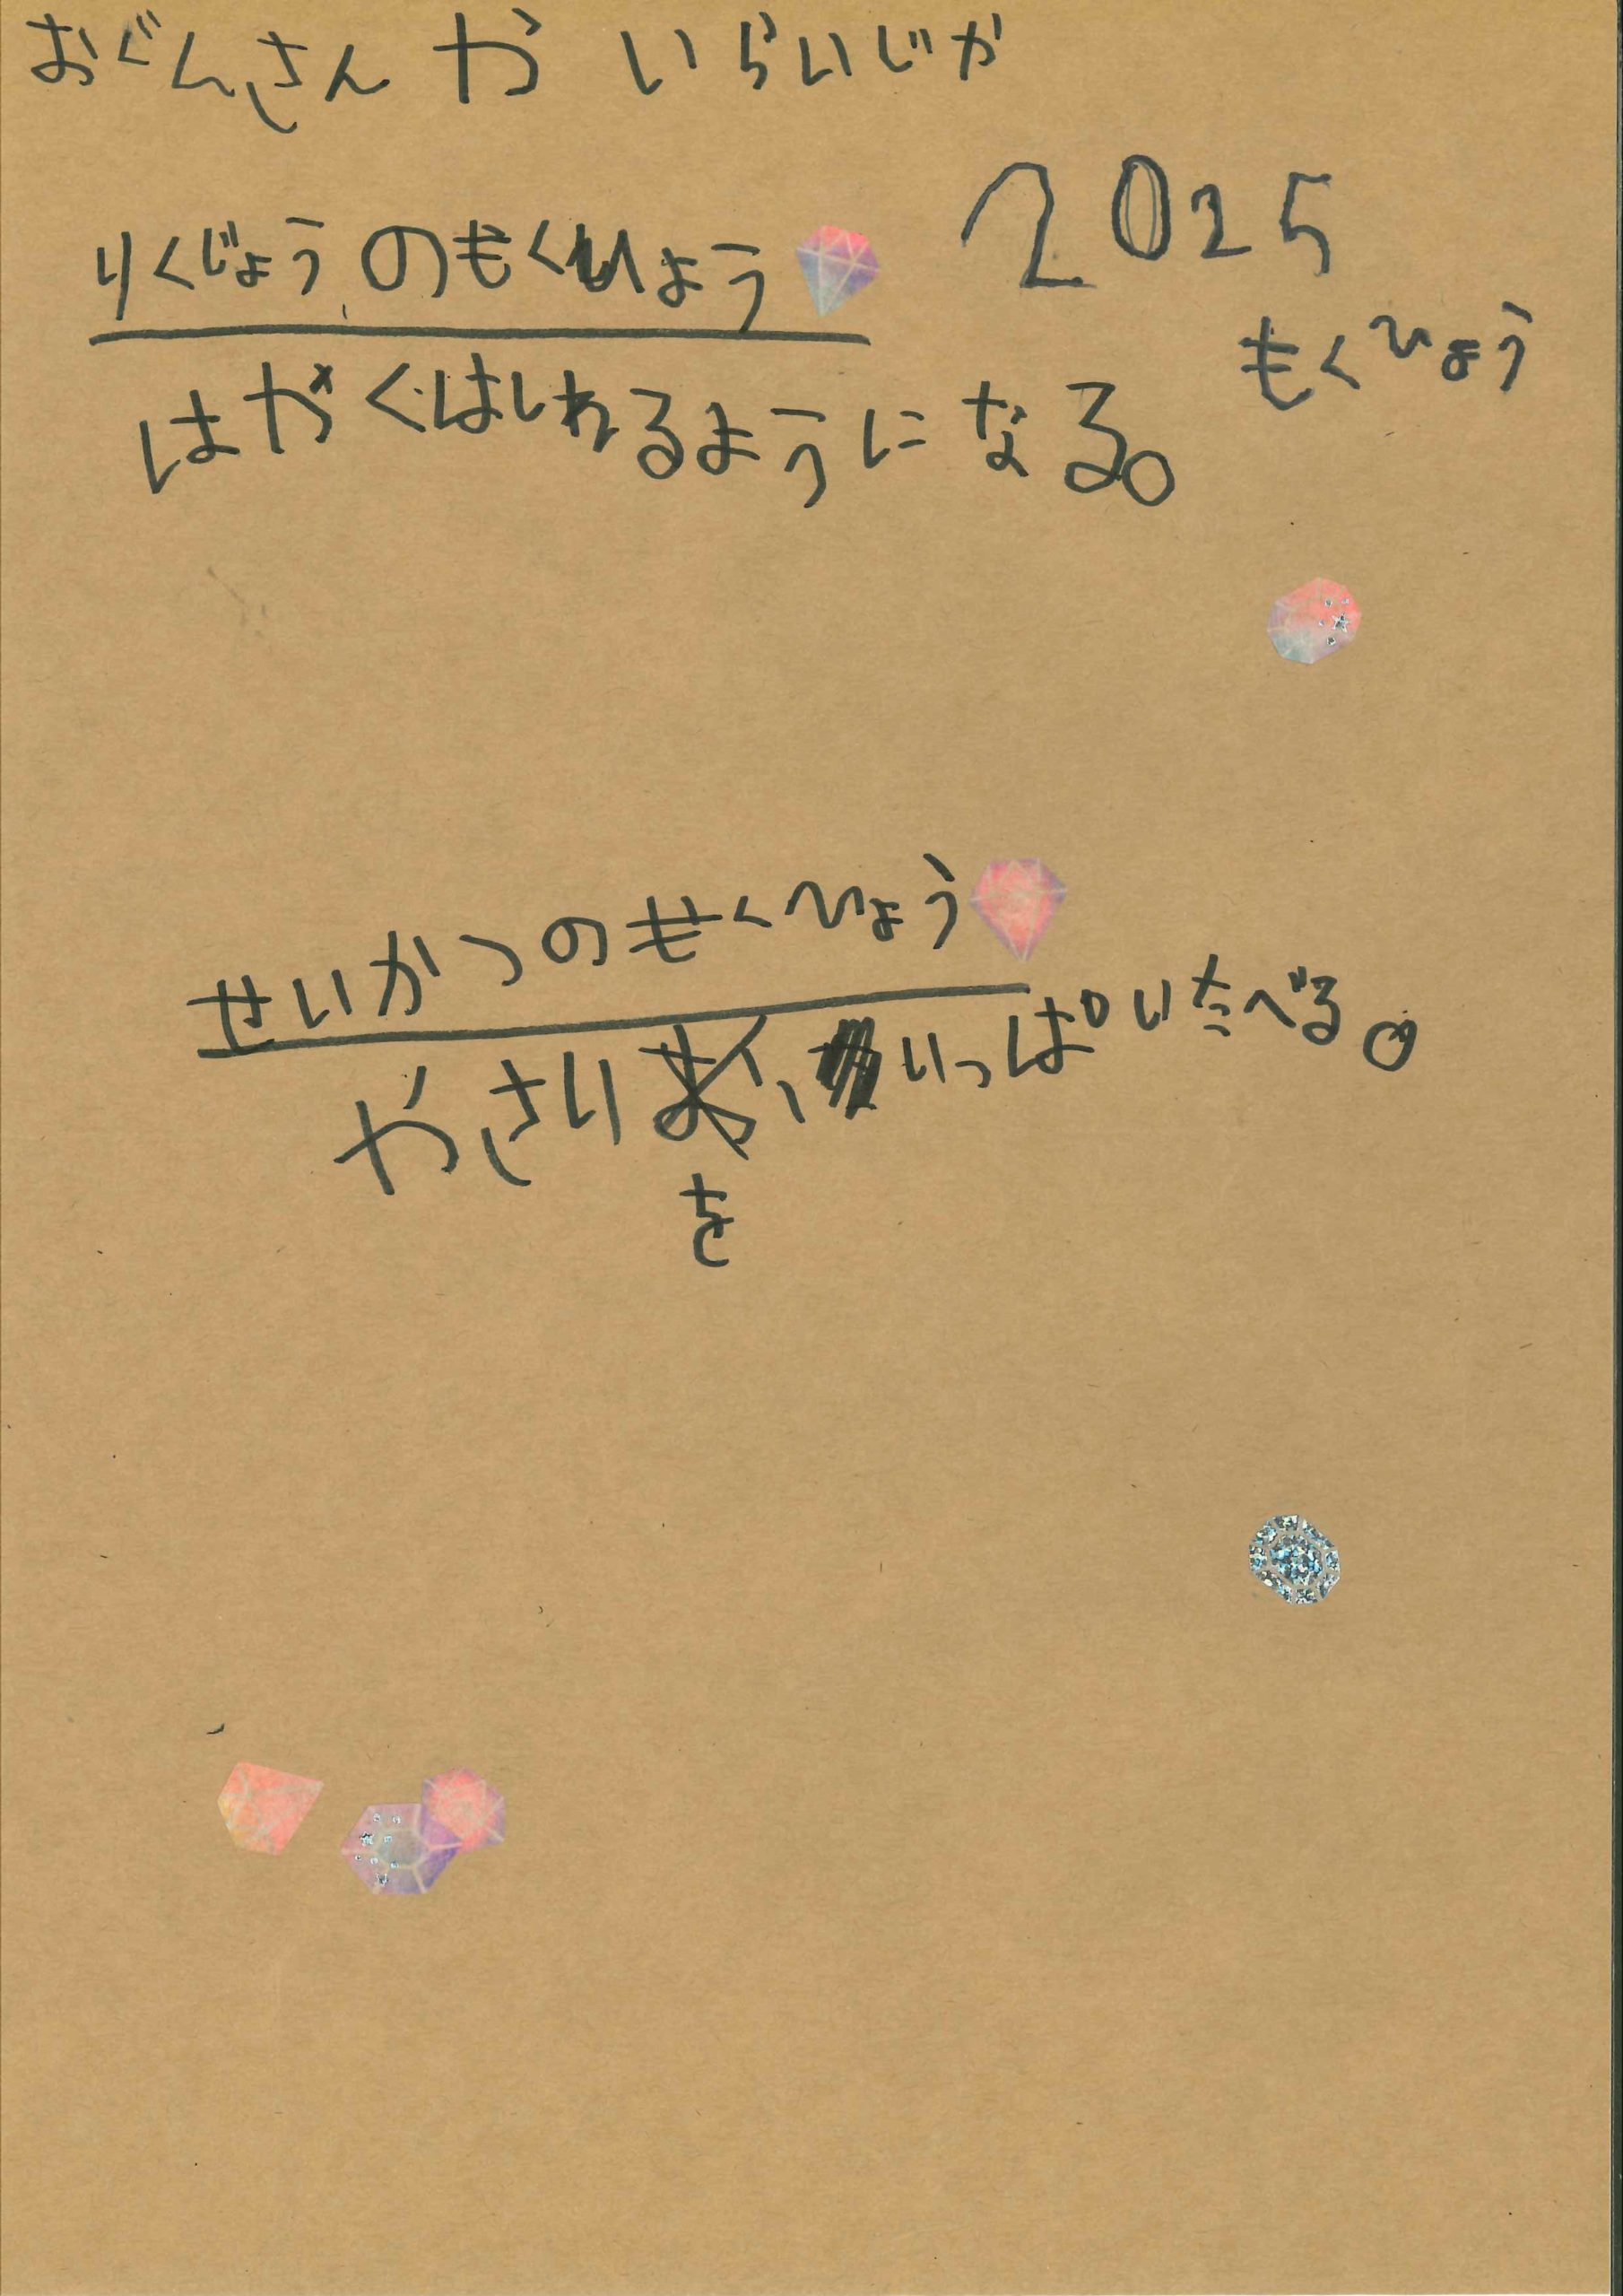 りくじょうのもくひょう
2025
もくひょう
はやくはしれるようになる。
せいかつのもくひょう
やさいを、いっぱいたべる。